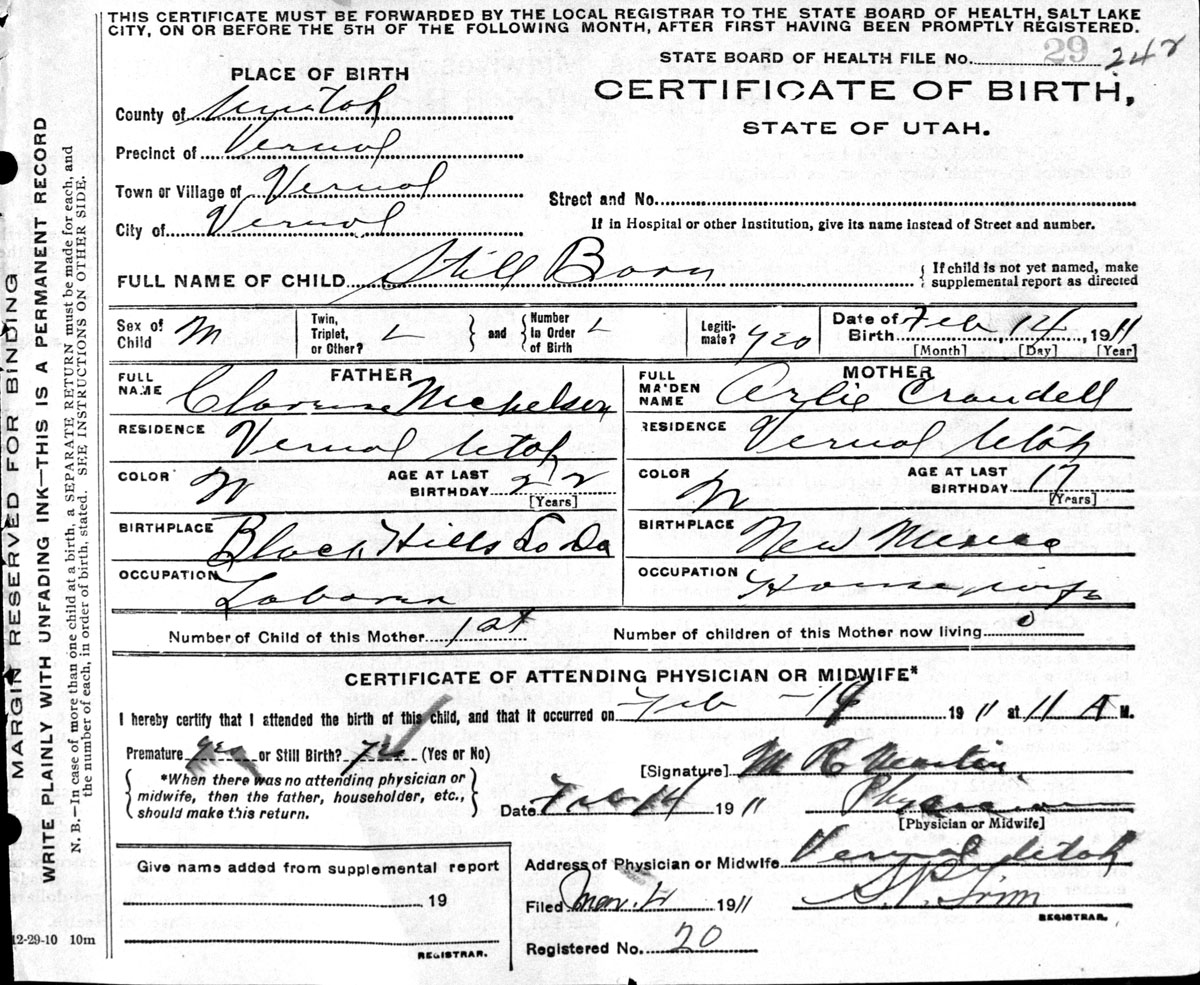 THIS CERTIFICATE MUST BE FORWARDED BY THE LOCAL REGISTRAR TO THE STATE BOARD OF HEALTH, SALT LAKE
CITY, ON OR BEFORE THE 5TH OF THE FOLLOWING MONTH, AFTER FIRST HAVING BEEN PROMPTLY REGISTERED.
STATE BOARD OF HEALTH FILE No. 29 242
CERTIFICATE OF BIRTH,
STATE OF UTAH.
PLACE OF BIRTH
County of
Precinct of Vernal
Town or Village of Vernal
City of Vernal
Street and No.
If in Hospital or other Institution, give its name instead of Street and number.
FULL NAME OF CHILD Still Born
If child is not yet named, make
supplemental report as directed
Sex of
Child M
Twin,
Triplet,
or Other?
and
Number
in Order
of Birth
Legiti-
mate? yes
Date of
Birth Feb 14, 1911
[Month] [Day] [Year]
FATHER
FULL
NAME Clarence
RESIDENCE Vernal Utah
COLOR W
AGE AT LAST
BIRTHDAY 22
[Years]
BIRTHPLACE Black Hills So Da
OCCUPATION
MOTHER
FULL
MAIDEN
NAME Arlie Crandell
RESIDENCE Vernal Utah
COLOR W
AGE AT LAST
BIRTHDAY 17
[Years]
BIRTHPLACE New Mexico
OCCUPATION Housewife
Number of Child of this Mother 1st
Number of children of this Mother now living 0
CERTIFICATE OF ATTENDING PHYSICIAN OR MIDWIFE*
I hereby certify that I attended the birth of this child, and that it occurred on Feb - 14 1911 at 11 A M.
Premature yes or Still Birth? yes (Yes or No)
*When there was no attending physician or
midwife, then the father, householder, etc.,
should make this return.
[Signature] M
Date Feb 14 1911
Physician
[Physician or Midwife]
Give name added from supplemental report
19
REGISTRAR.
Address of Physician or Midwife Vernal Utah
Filed 1911
REGISTRAR.
Registered No. 20
12-29-10 10m
MARGIN RESERVED FOR BINDING
WRITE PLAINLY WITH UNFADING INK—THIS IS A PERMANENT RECORD
N. B.—In case of more than one child at a birth, a SEPARATE RETURN must be made for each, and
the number of each, in order of birth, stated. SEE INSTRUCTIONS ON OTHER SIDE.